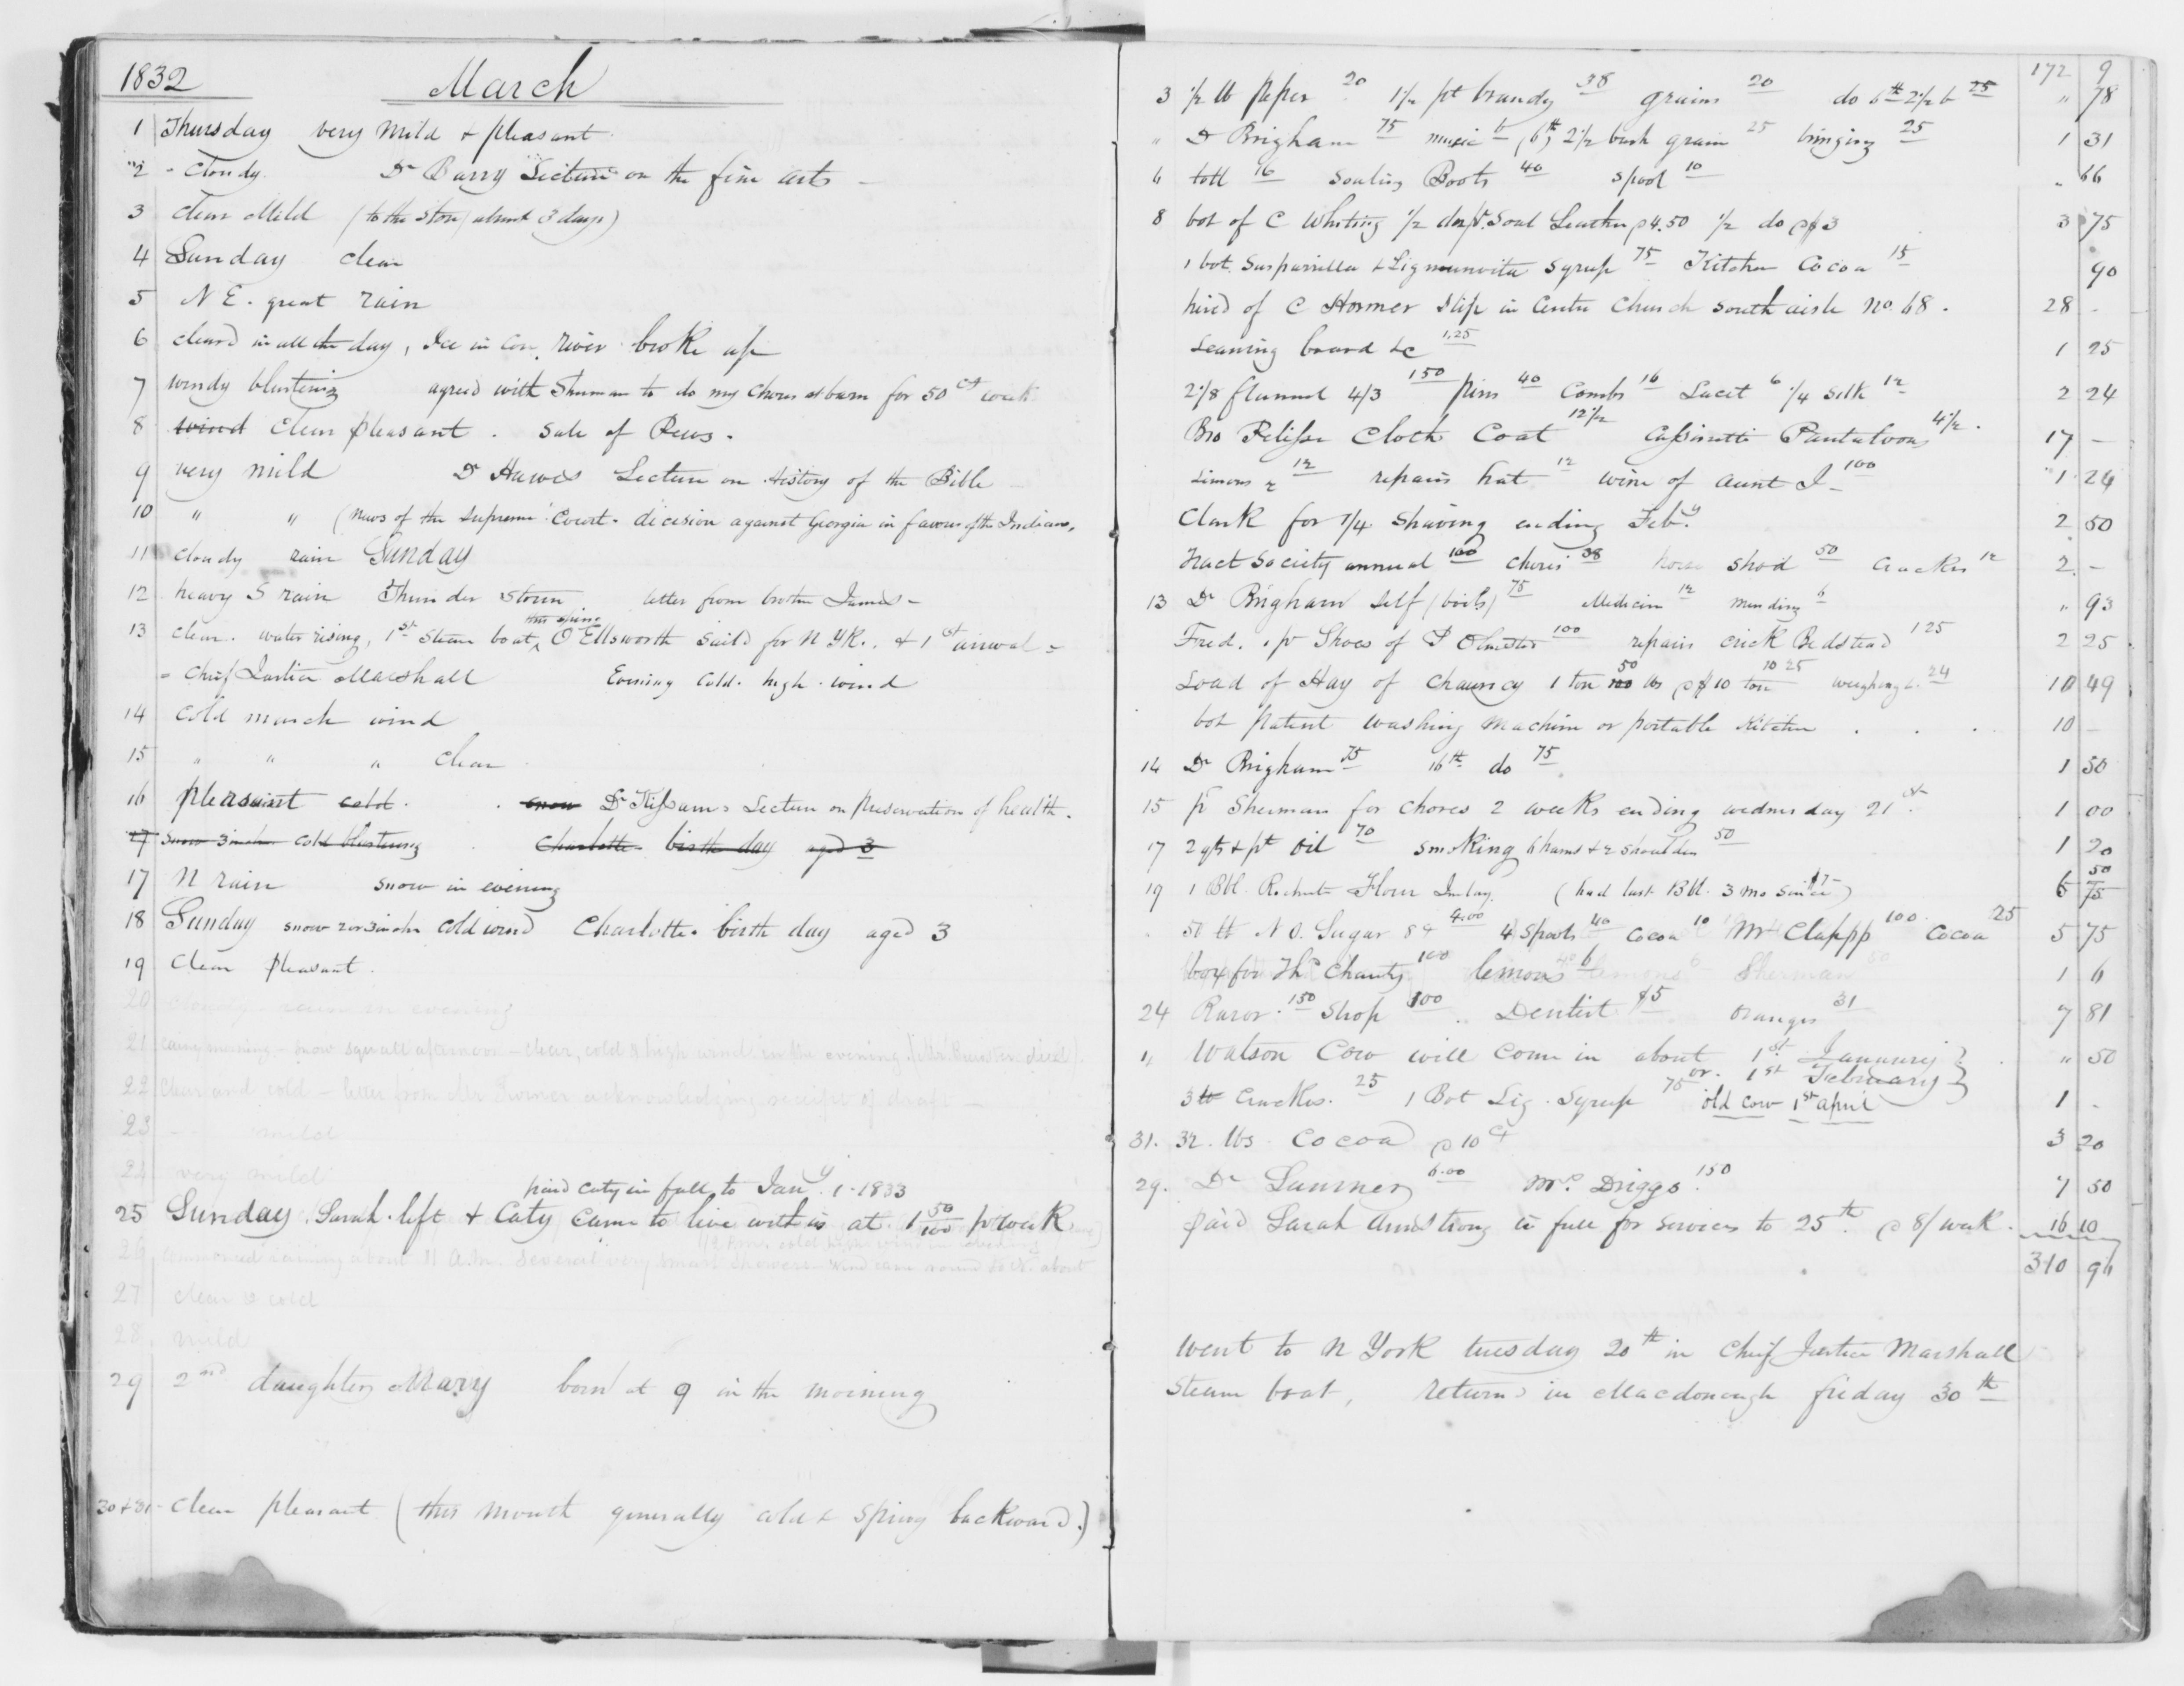 1832 March
1 Thursday very mild & pleasant
2 - cloudy. Dr Barry Lecture on the fine arts -
3 clear mild (to the store / absent 3 days)
4 Sunday clear
5 N E. great rain
6 cleard in all the day, Ice in Con. river broke up
7 windy blustering agreed with Shuman to do my chores at barn for 50 ct week
8 wind Clear pleasant . Sale of Pews .
9 very mild Dr Hawes Lecture on History of the Bible
10 " " (news of the Supreme Court. decision against Georgia in favour of the Indians,
11 cloudy rain Sunday
12 heavy S rain Thunder Storm letter from brother James -
this spring
13 clear. water rising, 1st Steam boat, O Ellsworth saild for N YK. & 1st arrival -
- Chief Justice Marshall Evening Cold. high wind
14 cold march wind
15 " " " clear
16 pleasant cold . snow Dr Kissams Lecture on preservation of health .
17 Snow 3 inches cold blustering Charlotte birth day aged 3
17 N rain snow in evening
18 Sunday snow 2 or 3 inches cold wind Charlotte. birth day aged 3
19 Clear pleasant
20 cloudy - rain in evening
21 snow squall afternoon - clear, cold & high wind in the evening.
22 clear and cold - letter from Mr Turner acknowledging receipt of draft -
23 mild
24 very mild
paid Caty in full to Jany. 1 - 1833
25 Sunday Sarah left & Caty came to live with us at 1 50/100 pr week
26 commenced raining about 11 A.M. Several very smart showers - wind came round to W. about
27 clear & cold
28 mild
29 2nd daughter Mary born at 9 in the morning
30 & 31 - Clear pleasant (this month generally cold & spring backward.)
172 9
3 1/2 lb paper 20 1 1/2 pt brandy 38 grains 20 do 6th 2 1/2 b 25 " 78
" Dr Brigham 75 music 6 (6th) 2 1/2 bush grain 25 bringing 25 1 31
6 toll 16 Soaling Boots 40 Spool 10 " 66
8 bot of C Whiting 1/2 Soal Leather @ 4.50 1/2 do @ $3 3 75
1 bot. Sarsparilla & Lignumvita Syrup 75 Kitchen Cocoa 15 90
hired of C Hosmer Slip in Centre Church South aisle No. 68 . 28 -
Leaning board &c 1.25 1 25
2 1/8 flannel 4/3 150 pins 40 Combs 16 Lacet 6 1/4 silk 12 2 24
Bro Pelisse Cloth Coat 12 1/2 Cassinette Pantaloons 4 1/2 . 17 -
Limons 2 12 repairs hat 12 wine of Aunt J - 100 1 24
Clark for 1/4 Shaving ending Feby. 2 50
Tract Society annual 100 chores 38 horse shod 50 Crackers 12 2 -
13 Dr Brigham self (boils) 75 Medicin 12 mending 6 " 93
Fred. 1 pr Shoes of P Olmsted 100 repairs crick Bedstead 125 2 25
Load of Hay of Chauncy 1 ton 50 lbs @ $10 ton 10 25 weighing &. 24 10 49
bot patent washing machine or portable Kitchen . . . 10 -
14 Dr Brigham 75 16th do 75 1 50
15 pd Sherman for chores 2 weeks ending wednesday 21st. 1 00
17 2 qts & pt Oil 70 Smoking 6 hams & 2 shoulders 50 1 20
19 1 Bbl. Rochester Flour Imlay. (had last Bbl. 3 mo since) 6 50 75
50 lb N O. Sugar 8 ct 4.00 4 Spools 40 Cocoa 10 Mr Clapp 100 Cocoa 25 5 75
box for Thos Chauncy 100 lemons 6 1 6
24 Razor . 150 Strop 100 Dentist $5 Oranges 31 7 81
" Watson Cow will come in about 1st January } " 50
or. 1st February }
3 lb Crackers. 25 1 Bot Lig. Syrup 75 old cow 1st april 1 -
31. 32. lbs Cocoa @ 10 ct 3 20
29. Dr Sumner 6.00 Mrs Driggs . 150 7 50
paid Sarah Armstrong in full for services to 25th. @ 8/ week . 16 10
310 96
went to N York tuesday 20th in Chief Justice Marshall
Steam boat, returnd in Macdonough friday 30th